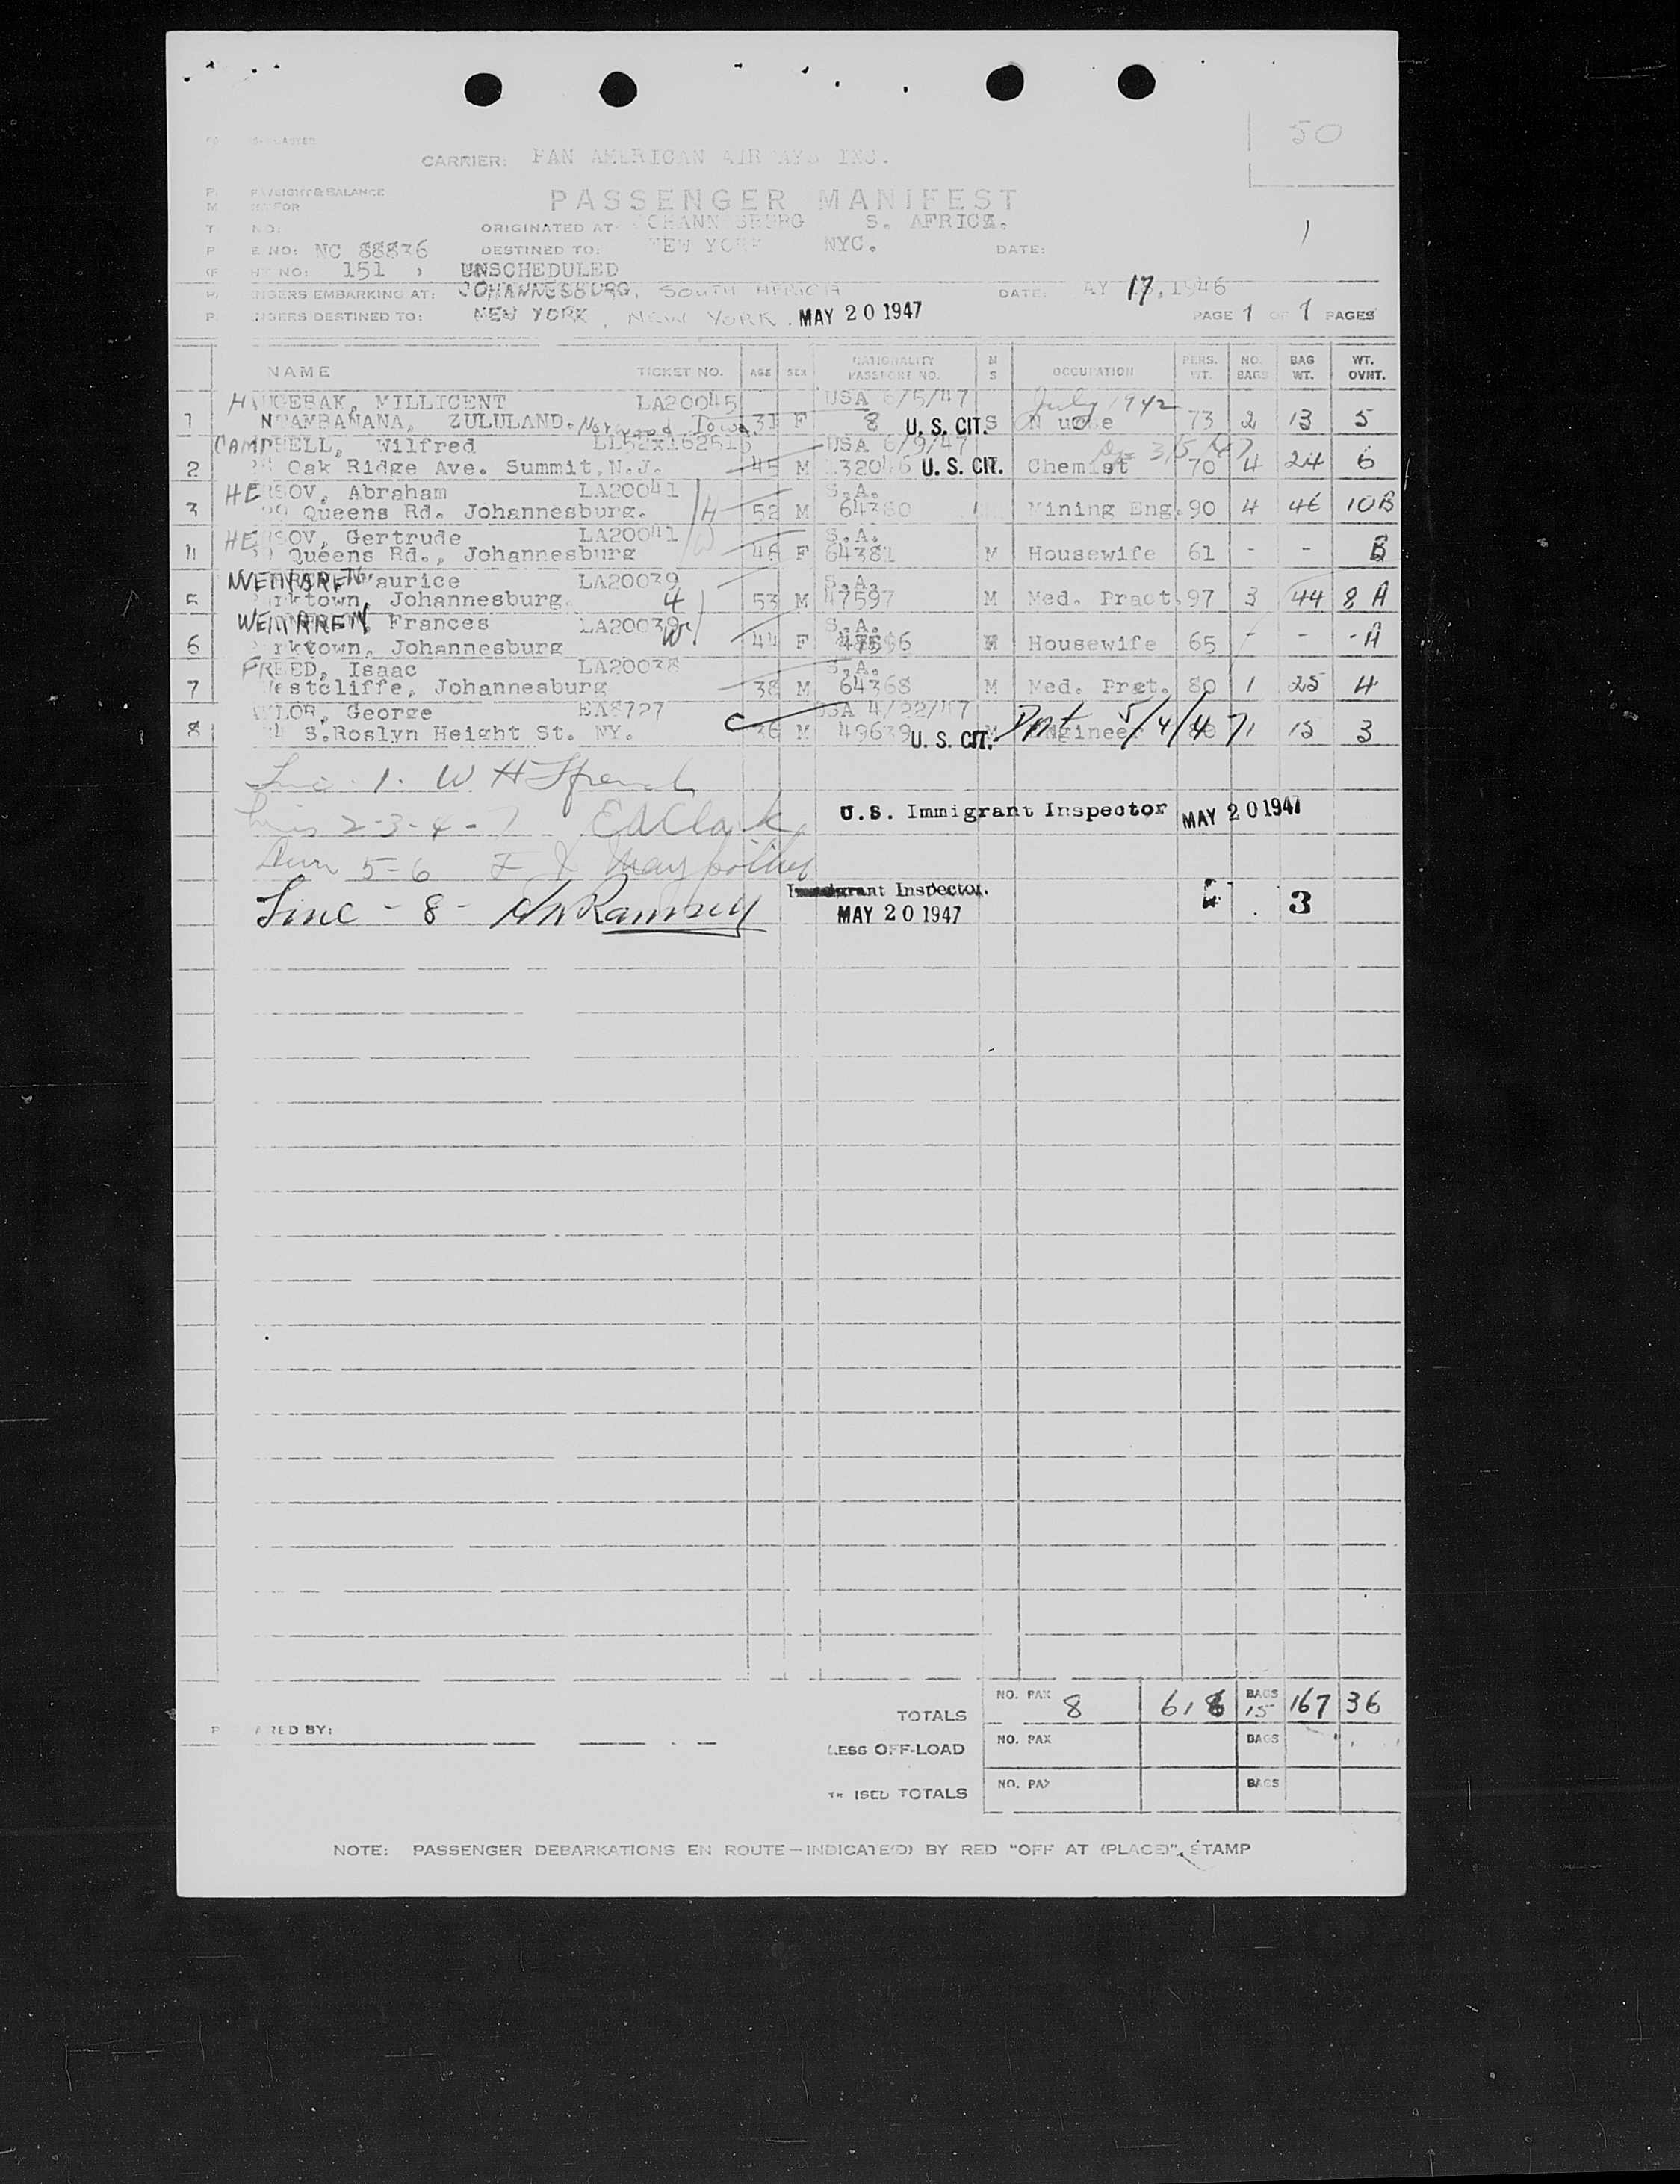 50
CARRIER: PAN AMERICAN AIRWAYS INC.
WEIGHT & BALANCE
PASSENGER MANIFEST
ORIGINATED AT: JOHANNESBURG S. AFRICA.
NO: NC 88836 DESTINED TO: NEW YORK NYC. DATE:
NO: 151 UNSCHEDULED
EMBARKING AT: JOHANNESBURG, SOUTH AFRICA DATE: MAY 17, 1946
DESTINED TO: NEW YORK, NEW YORK. MAY 20 1947 PAGE 1 OF 1 PAGES
NAME TICKET NO. AGE SEX NATIONALITY PASSPORT NO. M S OCCUPATION PERS. WT. NO. BAGS BAG WT. WT. OVNT.
HAUGEBAK, MILLICENT LA20045 USA 6/5/47 July 1942
1 ZULULAND. Iowa 31 F 8 U. S. CIT. S 73 2 13 5
CAMPBELL, Wilfred USA 6/9/47
2 Oak Ridge Ave. Summit, N.J. 45 M U. S. CIT. Chemist 70 4 24 6
HERSOV, Abraham LA20041 S.A.
3 Queens Rd. Johannesburg. H 52 M 64380 Mining Eng. 90 4 46 10B
HERSOV, Gertrude LA20041 S.A.
4 Queens Rd., Johannesburg W 46 F 64381 M Housewife 61 - - B
Maurice LA20039 S.A.
5 Parktown, Johannesburg. 53 M 47597 M Med. Pract. 97 3 44 8 A
Frances LA20039 S.A.
6 Parktown, Johannesburg W 44 F M Housewife 65 - - - A
FREED, Isaac LA20038 S.A.
7 Westcliffe, Johannesburg 38 M 64368 M Med. Prct. 80 1 25 4
George EA8727 USA 4/22/47
8 S.Roslyn Height St. NY. C 36 M 49639 U. S. CIT. M Engineer 5/4/47 1 15 3
Line 1. W H
Lines 2-3-4-7 E A Clark
U.S. Immigrant Inspector MAY 20 1947
5-6
Line - 8 - Ramsey
Immigrant Inspector.
MAY 20 1947
3
TOTALS NO. PAX 8 616 BAGS 15 167 36
PREPARED BY:
LESS OFF-LOAD NO. PAX BAGS
REVISED TOTALS NO. PAX BAGS
NOTE: PASSENGER DEBARKATIONS EN ROUTE—INDICATE(D) BY RED "OFF AT (PLACE)" STAMP